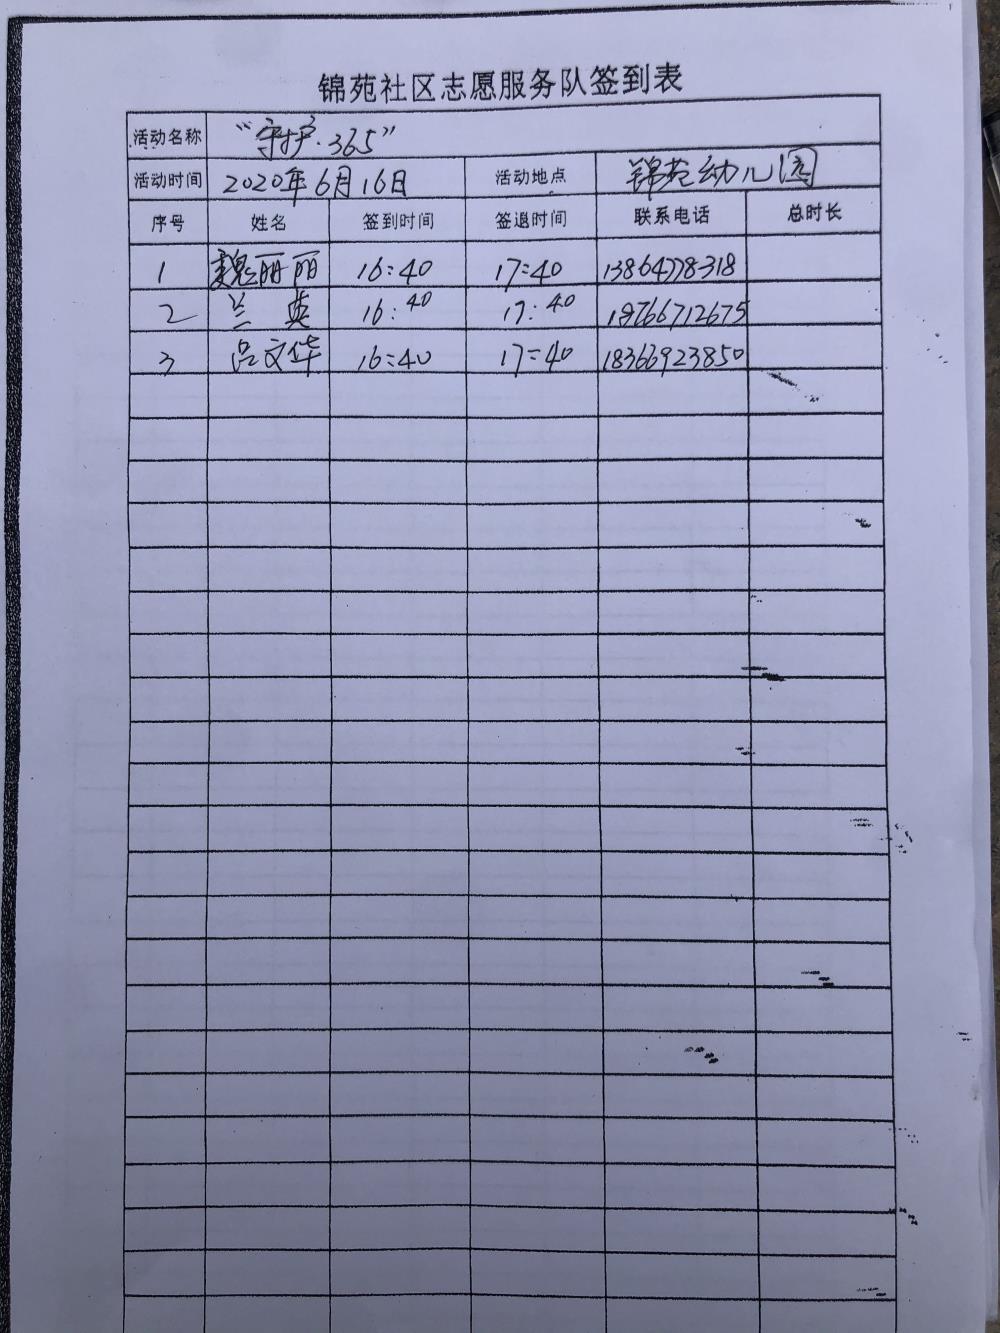 锦苑社区志愿服务队签到表
活动名称 “守护·365”
活动时间 2020年6月16日 活动地点 锦苑幼儿园
序号 姓名 签到时间 签退时间 联系电话 总时长
1 魏丽丽 16:40 17:40 13864778318
2 兰英 16:40 17:40 18766712675
3 吕文华 16:40 17:40 18366923850